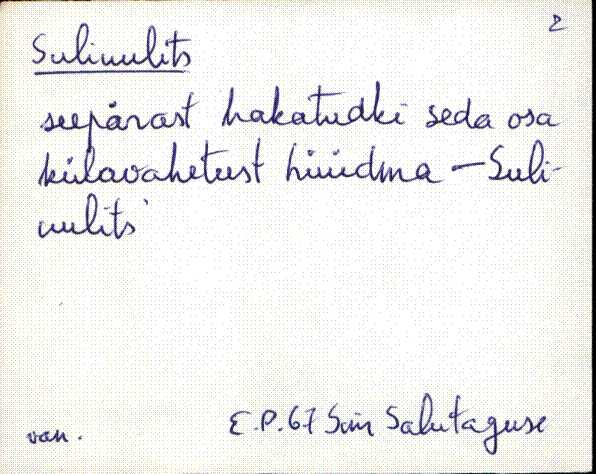 2
Suliuulits
seepärast hakatudki seda osa
külavahetust hüüdma – Suli-
uulits
van.
E.P. 67 Sim Salutaguse